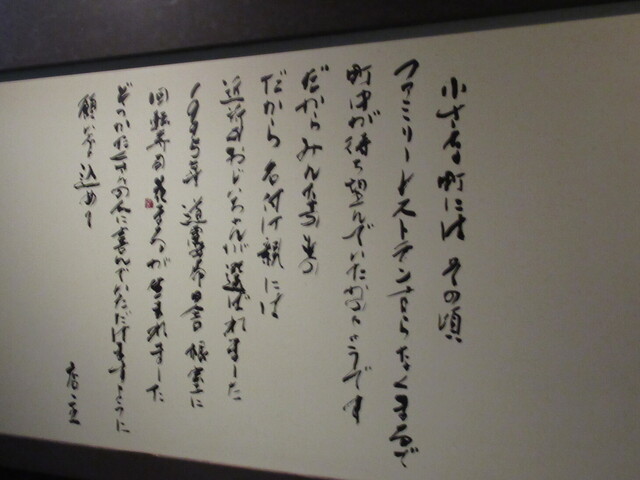 小さな町には その頃
ファミリーレストランすらなく まるで
町中が待ち望んでいたかのようです
だからみんなの
だから 名付け親には
近所のおじいちゃんが選ばれました
根室に
回転寿司 花まるが生まれました
たくさんの人に喜んでいただけますように
願いを 込めて
店主